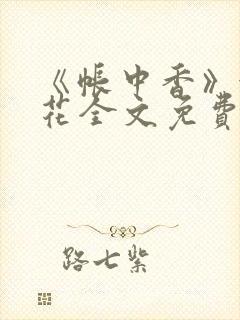 《帐中香》
花全文免費
路七紫